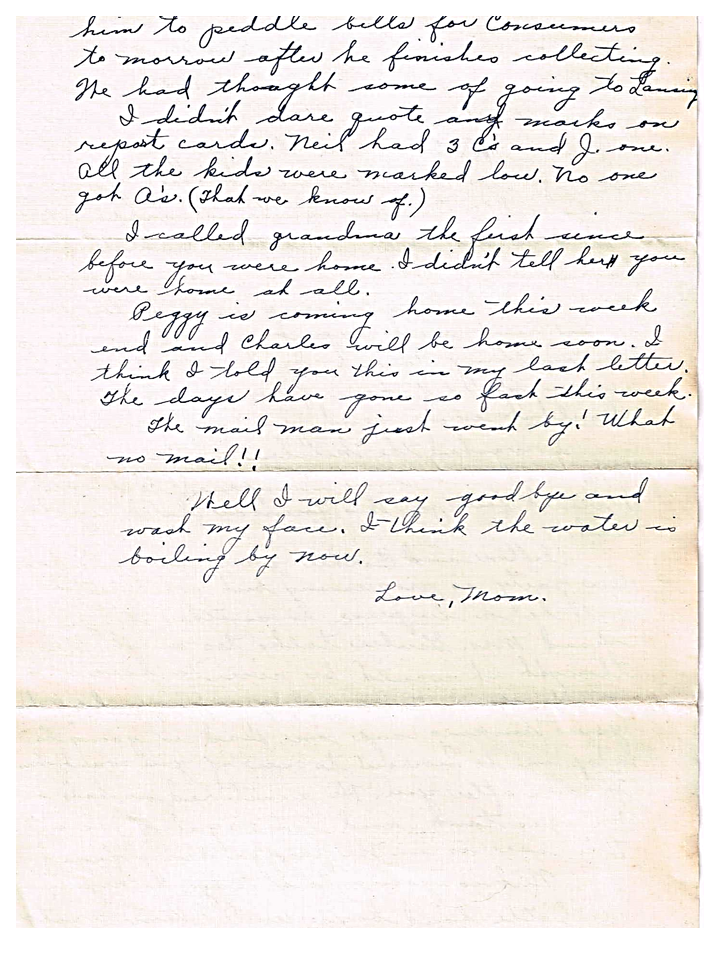 him to peddle bills for Consumers
to morrow after he finishes collecting.
He had thought some of going to Lansing
I didn't dare quote any marks on
report cards. Neil had 3 C's and J. one.
All the kids were marked low. No one
got A's. (That we know of.)
I called grandma the first since
before you were home. I didn't tell her you
were home at all.
Peggy is coming home this week
end and Charles will be home soon. I
think I told you this in my last letter.
The days have gone so fast this week.
The mail man just went by! What
no mail!!
Well I will say goodbye and
wash my face. I think the water is
boiling by now.
Love, Mom.